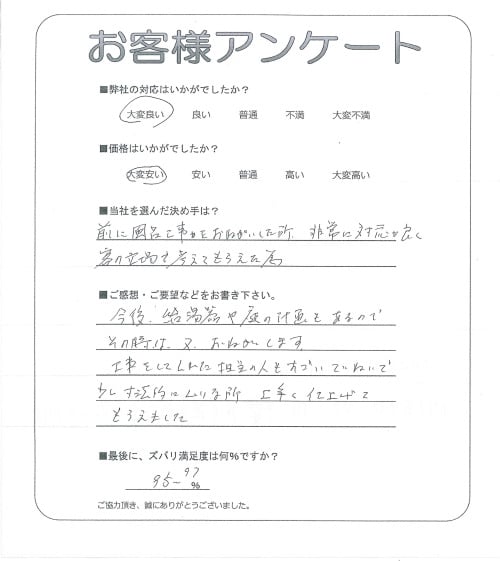 お客様アンケート
■弊社の対応はいかがでしたか？
大変良い 良い 普通 不満 大変不満
■価格はいかがでしたか？
大変安い 安い 普通 高い 大変高い
■当社を選んだ決め手は？
前に風呂工事をおねがいした所、非常に対応が良く
客の立場で考えてもらえた為
■ご感想・ご要望などをお書き下さい。
今後、給湯器や庭の計画もあるので
その時は、又、おねがいします
工事をしてくれた担当の人も ていねいで
少し寸法的に な所 上手く仕上げて
もらえました
■最後に、ズバリ満足度は何％ですか？
95－97
％
ご協力頂き、誠にありがとうございました。